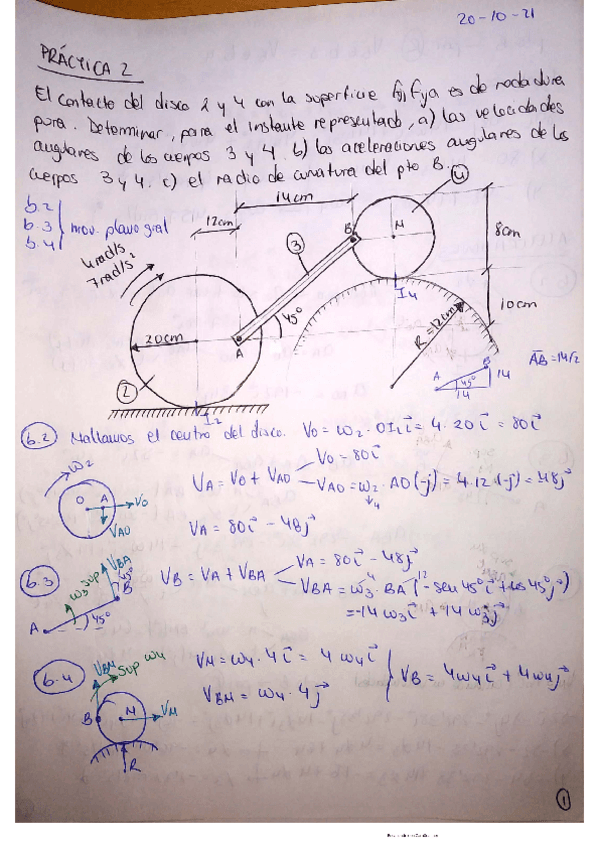 20-10-21
PRÁCTICA 2
El contacto del disco 2 y 4 con la superficie fija es de rodadura
pura. Determinar, para el instante representado, a) las velocidades
angulares de los cuerpos 3 y 4. b) las aceleraciones angulares de los
cuerpos 3 y 4. c) el radio de curvatura del pto B.
b.2
b.3 mov. plano gral
b.4
4rad/s
7rad/s²
12cm
14cm
8cm
10cm
20cm
R=12cm
45°
A
B
M
I4
I2
2
3
4
A
B
45°
14
14
AB=14√2
b.2 Hallamos el centro del disco. Vo = ω2 · OI2 i = 4 · 20 i = 80 i
ω2
O A Vo
VAO
VA = Vo + VAO
Vo = 80 i
VAO = ω2 · AO (-j) = 4.12 · (-j) = 48 j
4
VA = 80 i - 48 j
b.3
ω3 sup
VBA
45°
B
A
45°
VB = VA + VBA
VA = 80 i - 48 j
VBA = ω3 · BA (-sen 45° i + cos 45° j)
= -14 ω3 i + 14 ω3 j
b.4
VBM
sup ω4
B M VM
R
VM = ω4 · 4 i = 4 ω4 i
VBM = ω4 · 4 j
VB = 4ω4 i + 4ω4 j
1